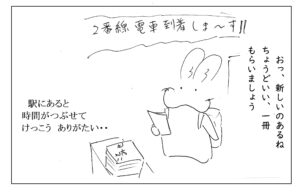 2番線 電車到着しま〜す!!
おっ、新しいのあるね
ちょうどいい、一冊
もらいましょう
駅にあると
時間がつぶせて
けっこう ありがたい・・